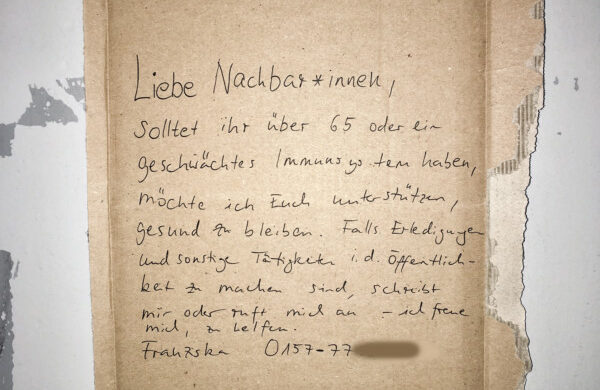 Liebe Nachbar*innen,
solltet ihr über 65 oder ein
geschwächtes Immunsystem haben,
möchte ich Euch unterstützen,
gesund zu bleiben. Falls Erledigungen
und sonstige Tätigkeiten i.d. Öffentlich-
keit zu machen sind, schreibt
mir oder ruft mich an – ich freue
mich, zu helfen.
Franziska 0157-77